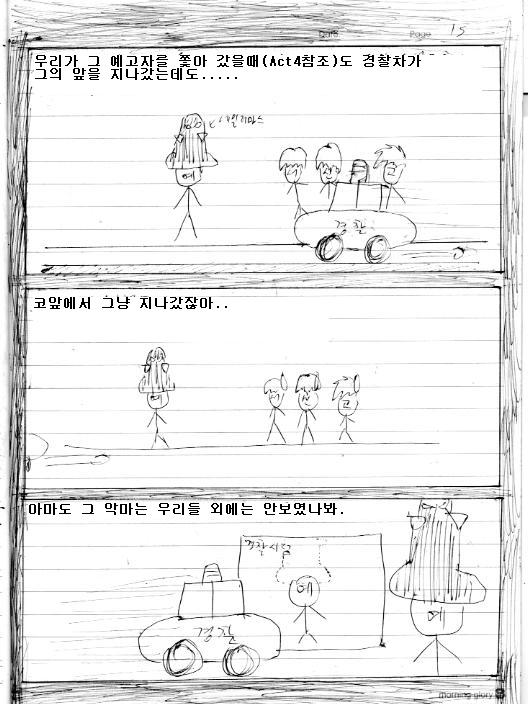 Date
Page 15
우리가 그 예고자를 쫓아 갔을때(Act4참조)도 경찰차가
그의 앞을 지나갔는데도.....
예
경찰
코앞에서 그냥 지나갔잖아..
예
아마도 그 악마는 우리들 외에는 안보였나봐.
경찰시점
예
경찰
예
morning glory